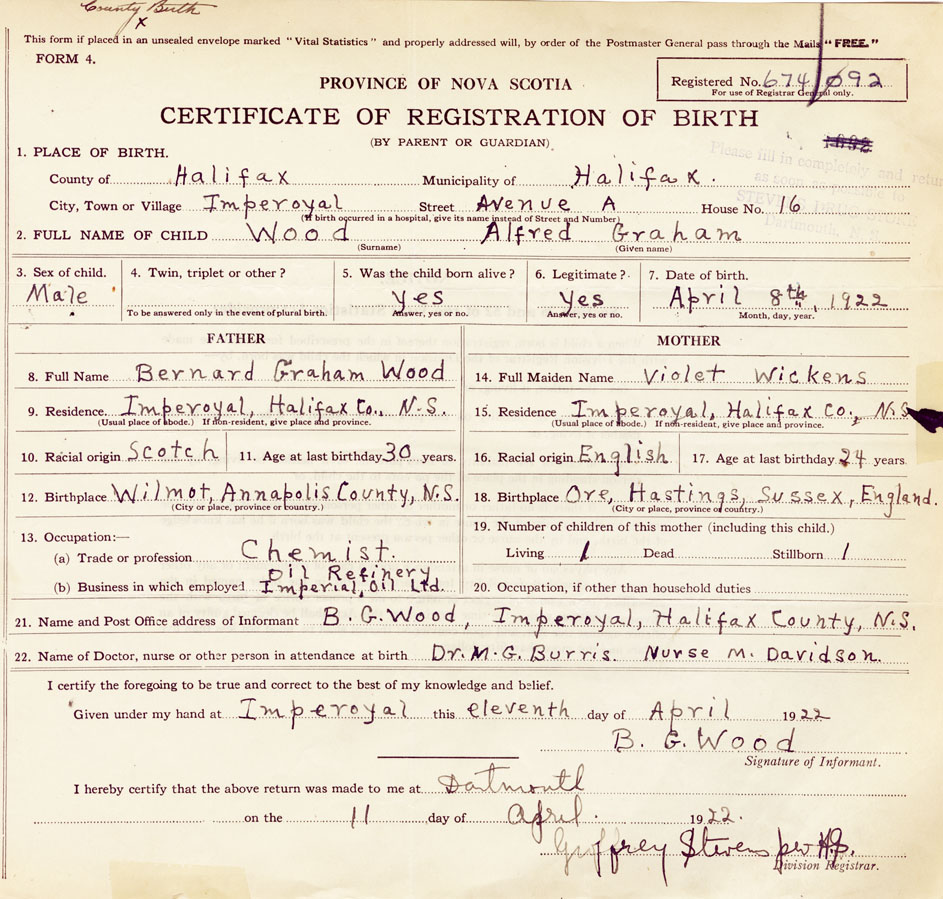 County Birth
x
This form if placed in an unsealed envelope marked "Vital Statistics" and properly addressed will, by order of the Postmaster General pass through the Mails "FREE."
FORM 4.
PROVINCE OF NOVA SCOTIA
Registered No. 674 092
For use of Registrar General only.
CERTIFICATE OF REGISTRATION OF BIRTH
(BY PARENT OR GUARDIAN)
Please fill in completely and return
as soon as possible to
Dartmouth, N. S.
1. PLACE OF BIRTH.
County of Halifax Municipality of Halifax.
City, Town or Village Imperoyal Street Avenue A House No. 16
(If birth occurred in a hospital, give its name instead of Street and Number)
2. FULL NAME OF CHILD Wood Alfred Graham
(Surname) (Given name)
3. Sex of child. 4. Twin, triplet or other? 5. Was the child born alive? 6. Legitimate? 7. Date of birth.
Male yes yes April 8th, 1922
To be answered only in the event of plural birth. Answer, yes or no. Answer, yes or no. Month, day, year.
FATHER MOTHER
8. Full Name Bernard Graham Wood 14. Full Maiden Name Violet Wickens
9. Residence. Imperoyal, Halifax Co., N.S. 15. Residence Imperoyal, Halifax Co., N.S.
(Usual place of abode.) If non-resident, give place and province. (Usual place of abode.) If non-resident, give place and province.
10. Racial origin Scotch 11. Age at last birthday 30 years. 16. Racial origin English 17. Age at last birthday 24 years.
12. Birthplace Wilmot, Annapolis County, N.S. 18. Birthplace Ore, Hastings, Sussex, England.
(City or place, province or country.) (City or place, province or country.)
13. Occupation:— 19. Number of children of this mother (including this child.)
(a) Trade or profession Chemist. Living 1 Dead Stillborn 1
Oil Refinery
(b) Business in which employed Imperial Oil Ltd. 20. Occupation, if other than household duties
21. Name and Post Office address of Informant B. G. Wood, Imperoyal, Halifax County, N.S.
22. Name of Doctor, nurse or other person in attendance at birth Dr. M. G. Burris. Nurse M. Davidson.
I certify the foregoing to be true and correct to the best of my knowledge and belief.
Given under my hand at Imperoyal this eleventh day of April 1922
B. G. Wood
Signature of Informant.
I hereby certify that the above return was made to me at Dartmouth
on the 11 day of April. 1922.
Geoffrey Stevens per
Division Registrar.